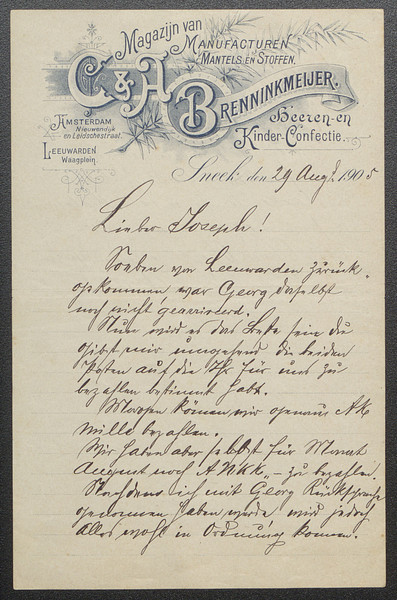 Magazijn van
Manufacturen
Mantels en Stoffen.
C & A Brenninkmeijer.
Heeren- en
Kinder-Confectie.
Amsterdam
Nieuwendijk
en Leidschestraat.
Leeuwarden
Waagplein.
Sneek, den 29 Augt. 1905
Lieber Joseph!
Soeben von Leeuwarden zurück-
gekommen, war Georg daselbst
noch nicht
Nun wird es das Beste sein du
gibst mir umgehend die beiden
Posten auf die Ihr für uns zu
bezahlen bestimmt habt.
Morgen können wir genau
Mille bezahlen.
Wir haben aber selbst für Monat
August noch zu bezahlen.
Nachdem ich mit Georg Rücksprache
genommen haben werde wird jedoch
Alles wohl in Ordnung kommen.